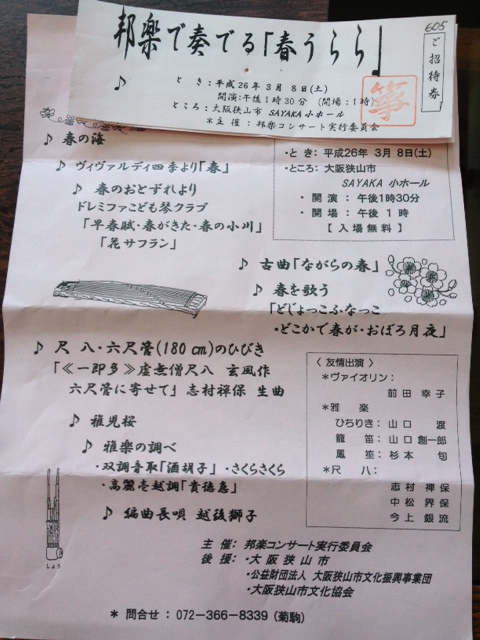 邦楽で奏でる「春うらら」
605
ご招待券
♪
とき:平成26年3月8日(土)
開演:午後1時30分 (開場:1時)
ところ:大阪狭山市 SAYAKA小ホール
*主催:邦楽コンサート実行委員会
箏
♪ 春の海
♪ ヴィヴァルディ四季より「春」
♪ 春のおとずれより
ドレミファこども琴クラブ
「早春賦・春がきた・春の小川」
「花サフラン」
・とき: 平成26年 3月 8日(土)
・ところ: 大阪狭山市
SAYAKA 小ホール
・開演: 午後1時30分
・開場: 午後 1 時
【入場無料】
♪ 古曲「ながらの春」
♪ 春を歌う
「どじょっこふなっこ
・どこかで春が・おぼろ月夜」
♪ 尺八・六尺管(180cm)のひびき
「《一即多》虚無僧尺八 玄風作
六尺管に寄せて」志村禅保 生曲
♪ 稚児桜
♪ 雅楽の調べ
・双調音取「酒胡子」・さくらさくら
・高麗壱越調「貴徳急」
♪ 編曲長唄 越後獅子
しょう
〈友情出演〉
*ヴァイオリン:
前田 幸子
*雅楽
ひちりき: 山口 渡
龍笛: 山口 創一郎
鳳笙: 杉本 旬
*尺八:
志村 禅保
中松 界保
今上 銀流
主催: 邦楽コンサート実行委員会
後援: ・大阪狭山市
・公益財団法人 大阪狭山市文化振興事業団
・大阪狭山市文化協会
* 問合せ: 072-366-8339 (菊駒)